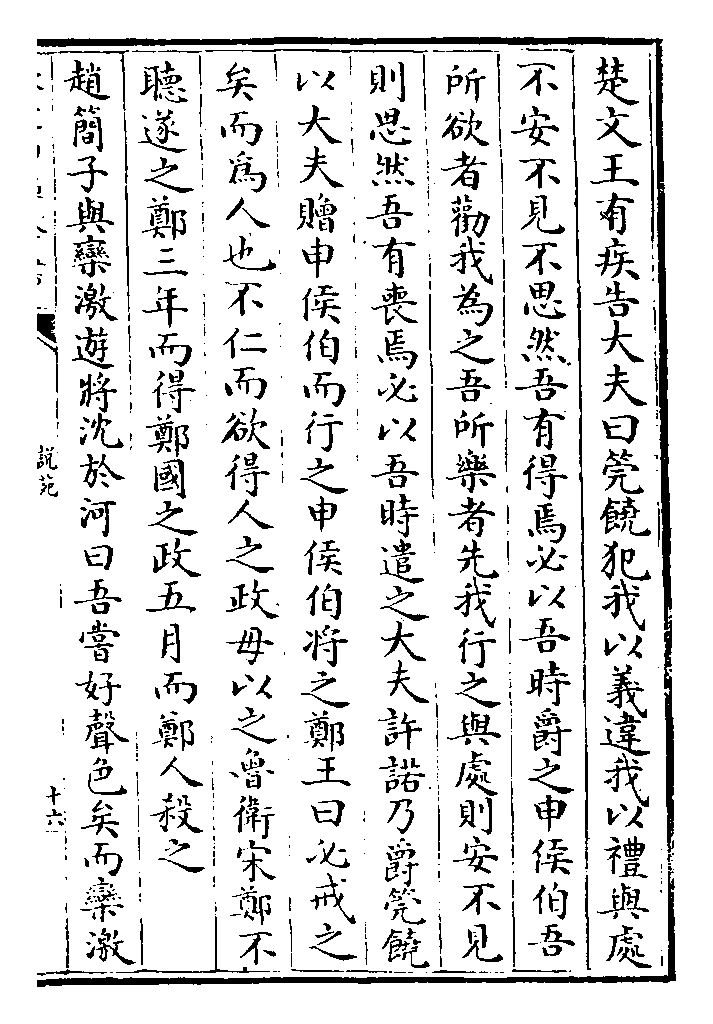 楚文王有疾告大夫曰筦饒犯我以義違我以禮與處
不安不見不思然吾有得焉必以吾時爵之申侯伯吾
所欲者勸我為之吾所樂者先我行之與處則安不見
則思然吾有喪焉必以吾時遣之大夫許諾乃爵筦饒
以大夫贈申侯伯而行之申侯伯将之鄭王曰必戒之
矣而爲人也不仁而欲得人之政毋以之魯衛宋鄭不
聽遂之鄭三年而得鄭國之政五月而鄭人殺之
趙簡子與欒激遊將沈於河曰吾嘗好聲色矣而欒激
說苑
十六